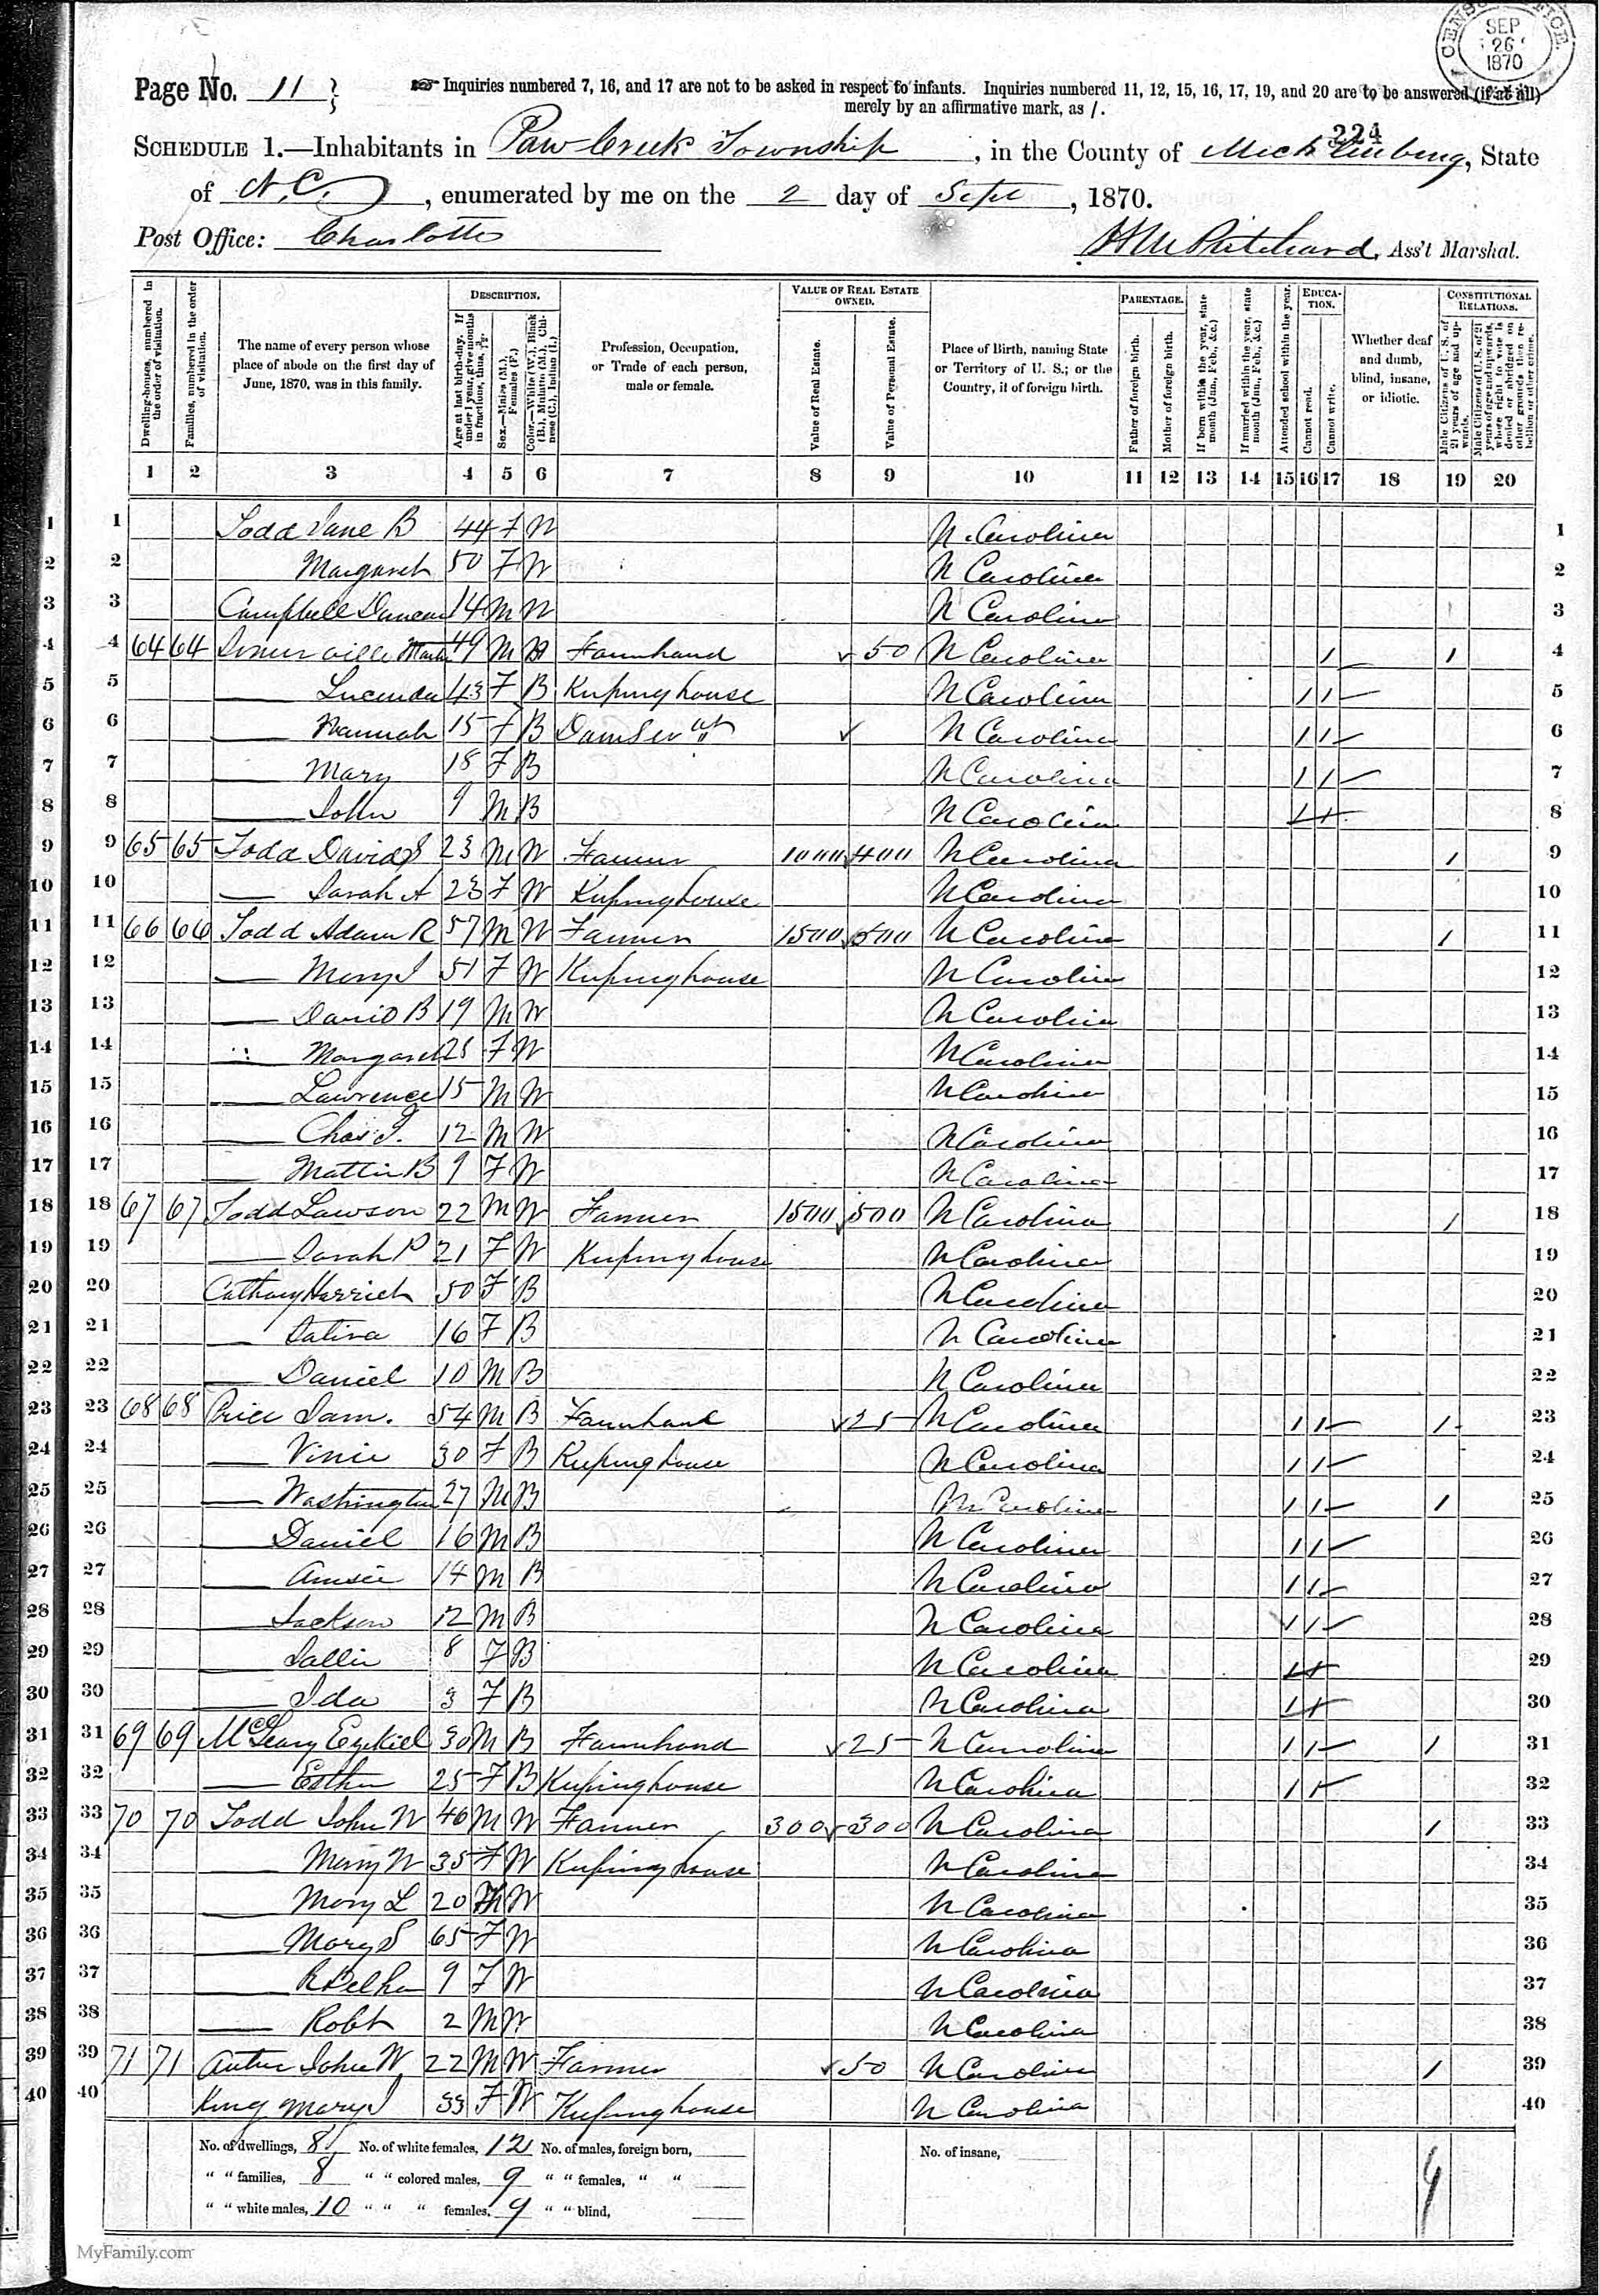 CENSUS OFFICE SEP 26 1870
Page No. 11
Inquiries numbered 7, 16, and 17 are not to be asked in respect to infants. Inquiries numbered 11, 12, 15, 16, 17, 19, and 20 are to be answered (if at all)
merely by an affirmative mark, as /.
224
SCHEDULE 1.—Inhabitants in Paw Creek Township, in the County of Mecklenburg, State
of N.C., enumerated by me on the 2 day of Sept, 1870.
Post Office: Charlotte
Pritchard, Ass't Marshal.
Dwelling-houses, numbered in the order of visitation.
Families, numbered in the order of visitation.
The name of every person whose place of abode on the first day of June, 1870, was in this family.
DESCRIPTION.
Age at last birth-day. If under 1 year, give months in fractions, thus, 3/12.
Sex.—Males (M.), Females (F.)
Color.—White (W.), Black (B.), Mulatto (M.), Chinese (C.), Indian (I.)
Profession, Occupation, or Trade of each person, male or female.
VALUE OF REAL ESTATE OWNED.
Value of Real Estate.
Value of Personal Estate.
Place of Birth, naming State or Territory of U. S.; or the Country, if of foreign birth.
PARENTAGE.
Father of foreign birth.
Mother of foreign birth.
If born within the year, state month (Jan., Feb., &c.)
If married within the year, state month (Jan., Feb., &c.)
Attended school within the year.
EDUCATION.
Cannot read.
Cannot write.
Whether deaf and dumb, blind, insane, or idiotic.
CONSTITUTIONAL RELATIONS.
Male Citizens of U. S. of 21 years of age and upwards.
Male Citizens of U. S. of 21 years of age and upwards, where right to vote is denied or abridged on other grounds than rebellion or other crime.
1 2 3 4 5 6 7 8 9 10 11 12 13 14 15 16 17 18 19 20
1 1 Todd Jane B 44 F W N. Carolina 1
2 2 Margaret 50 F W N Carolina 2
3 3 Campbell Duncan 14 M W N Carolina 3
4 4 64 64 49 M B Farmhand 50 N Carolina / / 4
5 5 Lucinda 43 F B Kepinghouse N Carolina / / 5
6 6 Hannah 15 F B Dom Servt N Carolina / / 6
7 7 Mary 18 F B N Carolina / / 7
8 8 John 9 M B N Carolina 8
9 9 65 65 Todd David S 23 M W Farmer 1000 400 N Carolina / 9
10 10 Sarah A 23 F W Kepinghouse N Carolina 10
11 11 66 66 Todd Adam R 57 M W Farmer 1500 500 N Carolina / 11
12 12 Mary J 51 F W Kepinghouse N Carolina 12
13 13 David B 19 M W N Carolina 13
14 14 Margaret 25 F W N Carolina 14
15 15 Lawrence 15 M W N Carolina 15
16 16 Chas J. 12 M W N Carolina 16
17 17 Mattie B 9 F W N Carolina 17
18 18 67 67 Todd Lawson 22 M W Farmer 1500 500 N Carolina / 18
19 19 Sarah P 21 F W Kepinghouse N Carolina 19
20 20 Cathey Harriet 50 F B N Carolina 20
21 21 16 F B N Carolina 21
22 22 Daniel 10 M B N Carolina 22
23 23 68 68 Price Sam. 54 M B Farmhand 25 N Carolina / / / 23
24 24 Vinie 30 F B Kepinghouse N Carolina / / 24
25 25 Washington 27 M B N Carolina / / / 25
26 26 Daniel 16 M B N Carolina / / 26
27 27 14 M B N Carolina / / 27
28 28 Jackson 12 M B N Carolina / / 28
29 29 Sallie 8 F B N Carolina 29
30 30 Ida 3 F B N Carolina 30
31 31 69 69 McLeary Ezekiel 30 M B Farmhand 25 N Carolina / / / 31
32 32 Esther 25 F B Kepinghouse N Carolina / / 32
33 33 70 70 Todd John W 46 M W Farmer 300 300 N Carolina / 33
34 34 Mary W 35 F W Kepinghouse N Carolina 34
35 35 Mary L 20 W N Carolina 35
36 36 Mary S 65 F W N Carolina 36
37 37 9 F W N Carolina 37
38 38 Robt 2 M W N Carolina 38
39 39 71 71 John W 22 M W Farmer 50 N Carolina / 39
40 40 King Mary J 33 F W Kepinghouse N Carolina 40
No. of dwellings, 8 No. of white females, 12 No. of males, foreign born, No. of insane, 9
" " families, 8 " " colored males, 9 " " females, " "
" " white males, 10 " " " females, 9 " " blind,
MyFamily.com